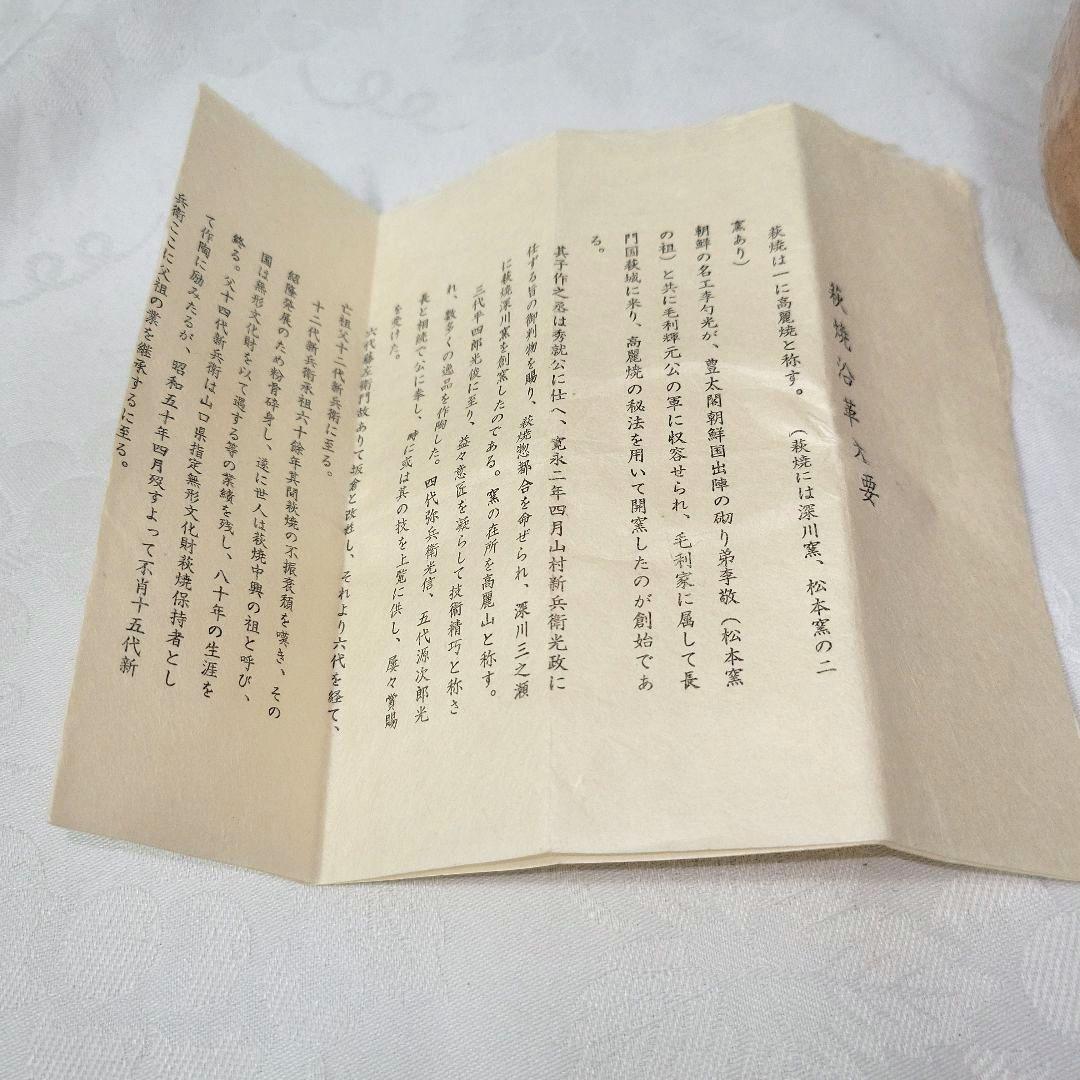 萩焼沿革大要
萩焼は一に高麗焼と称す。(萩焼には深川窯、松本窯の二
窯あり)
朝鮮の名工李勺光が、豊太閤朝鮮国出陣の砌り弟李敬(松本窯
の祖)と共に毛利輝元公の軍に収容せられ、毛利家に属して長
門国萩城に来り、高麗焼の秘法を用いて開窯したのが創始であ
る。
其子作之丞は秀就公に仕へ、寛永二年四月山村新兵衛光政に
任ずる旨の御判物を賜り、萩焼惣都合を命ぜられ、深川三之瀬
に萩焼深川窯を創窯したのである。窯の在所を高麗山と称す。
三代平四郎光俊に至り、益々意匠を凝らして技術精巧と称さ
れ、数多くの逸品を作陶した。四代弥兵衛光信、五代源次郎光
長と相続で公に奉し、時に或は其の技を上覧に供し、屡々賞賜
を受けた。
六代藤左衛門故ありて坂倉と改姓し、それより六代を経て、
亡祖父十二代新兵衛に至る。
十二代新兵衛承祖六十餘年其間萩焼の不振衰頽を嘆き、その
紹隆発展のため粉骨砕身し、遂に世人は萩焼中興の祖と呼び、
国は無形文化財を以て遇する等の業績を残し、八十年の生涯を
終る。父十四代新兵衛は山口県指定無形文化財萩焼保持者とし
て作陶に励みたるが、昭和五十年四月歿すよって不肖十五代新
兵衛ここに父祖の業を継承するに至る。